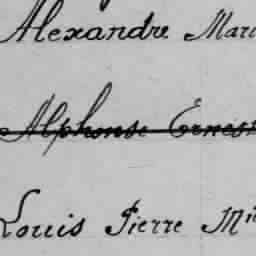 Alexandre Mari
Alphonse Ernest
Louis Pierre Mi